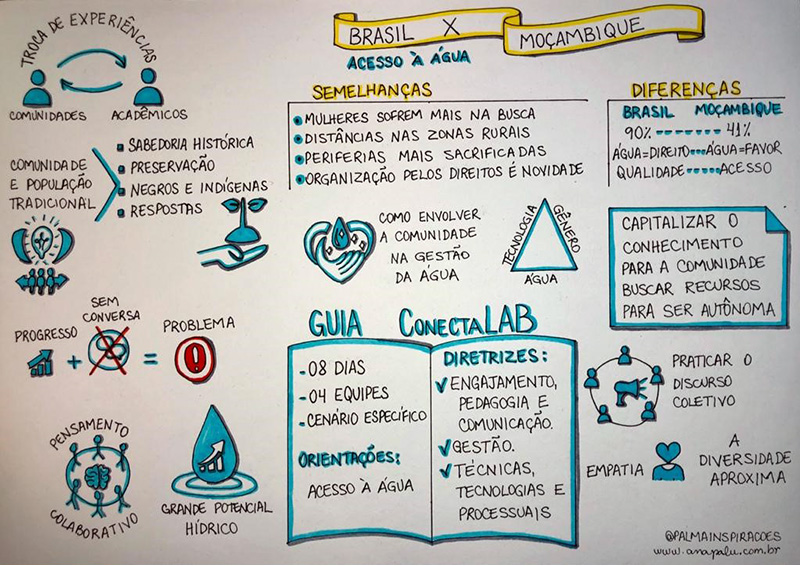 TROCA DE EXPERIÊNCIAS
COMUNIDADES
ACADÊMICOS
COMUNIDADE
E POPULAÇÃO
TRADICIONAL
SABEDORIA HISTÓRICA
PRESERVAÇÃO
NEGROS E INDÍGENAS
RESPOSTAS
PROGRESSO
+
SEM
CONVERSA
=
PROBLEMA
!
PENSAMENTO
COLABORATIVO
GRANDE POTENCIAL
HÍDRICO
BRASIL X MOÇAMBIQUE
ACESSO À ÁGUA
SEMELHANÇAS
MULHERES SOFREM MAIS NA BUSCA
DISTÂNCIAS NAS ZONAS RURAIS
PERIFERIAS MAIS SACRIFICADAS
ORGANIZAÇÃO PELOS DIREITOS É NOVIDADE
DIFERENÇAS
BRASIL MOÇAMBIQUE
90% ------- 41%
ÁGUA=DIREITO---ÁGUA=FAVOR
QUALIDADE-----ACESSO
COMO ENVOLVER
A COMUNIDADE
NA GESTÃO
DA ÁGUA
TECNOLOGIA
GÊNERO
ÁGUA
CAPITALIZAR O
CONHECIMENTO
PARA A COMUNIDADE
BUSCAR RECURSOS
PARA SER AUTÔNOMA
GUIA CONECTALAB
-08 DIAS
-04 EQUIPES
-CENÁRIO ESPECÍFICO
ORIENTAÇÕES:
ACESSO À ÁGUA
DIRETRIZES:
✓ENGAJAMENTO,
PEDAGOGIA E
COMUNICAÇÃO.
✓GESTÃO.
✓TÉCNICAS,
TECNOLOGIAS E
PROCESSUAIS
PRATICAR O
DISCURSO
COLETIVO
EMPATIA
A
DIVERSIDADE
APROXIMA
@PALMAINSPIRACOES
www.anapalu.com.br